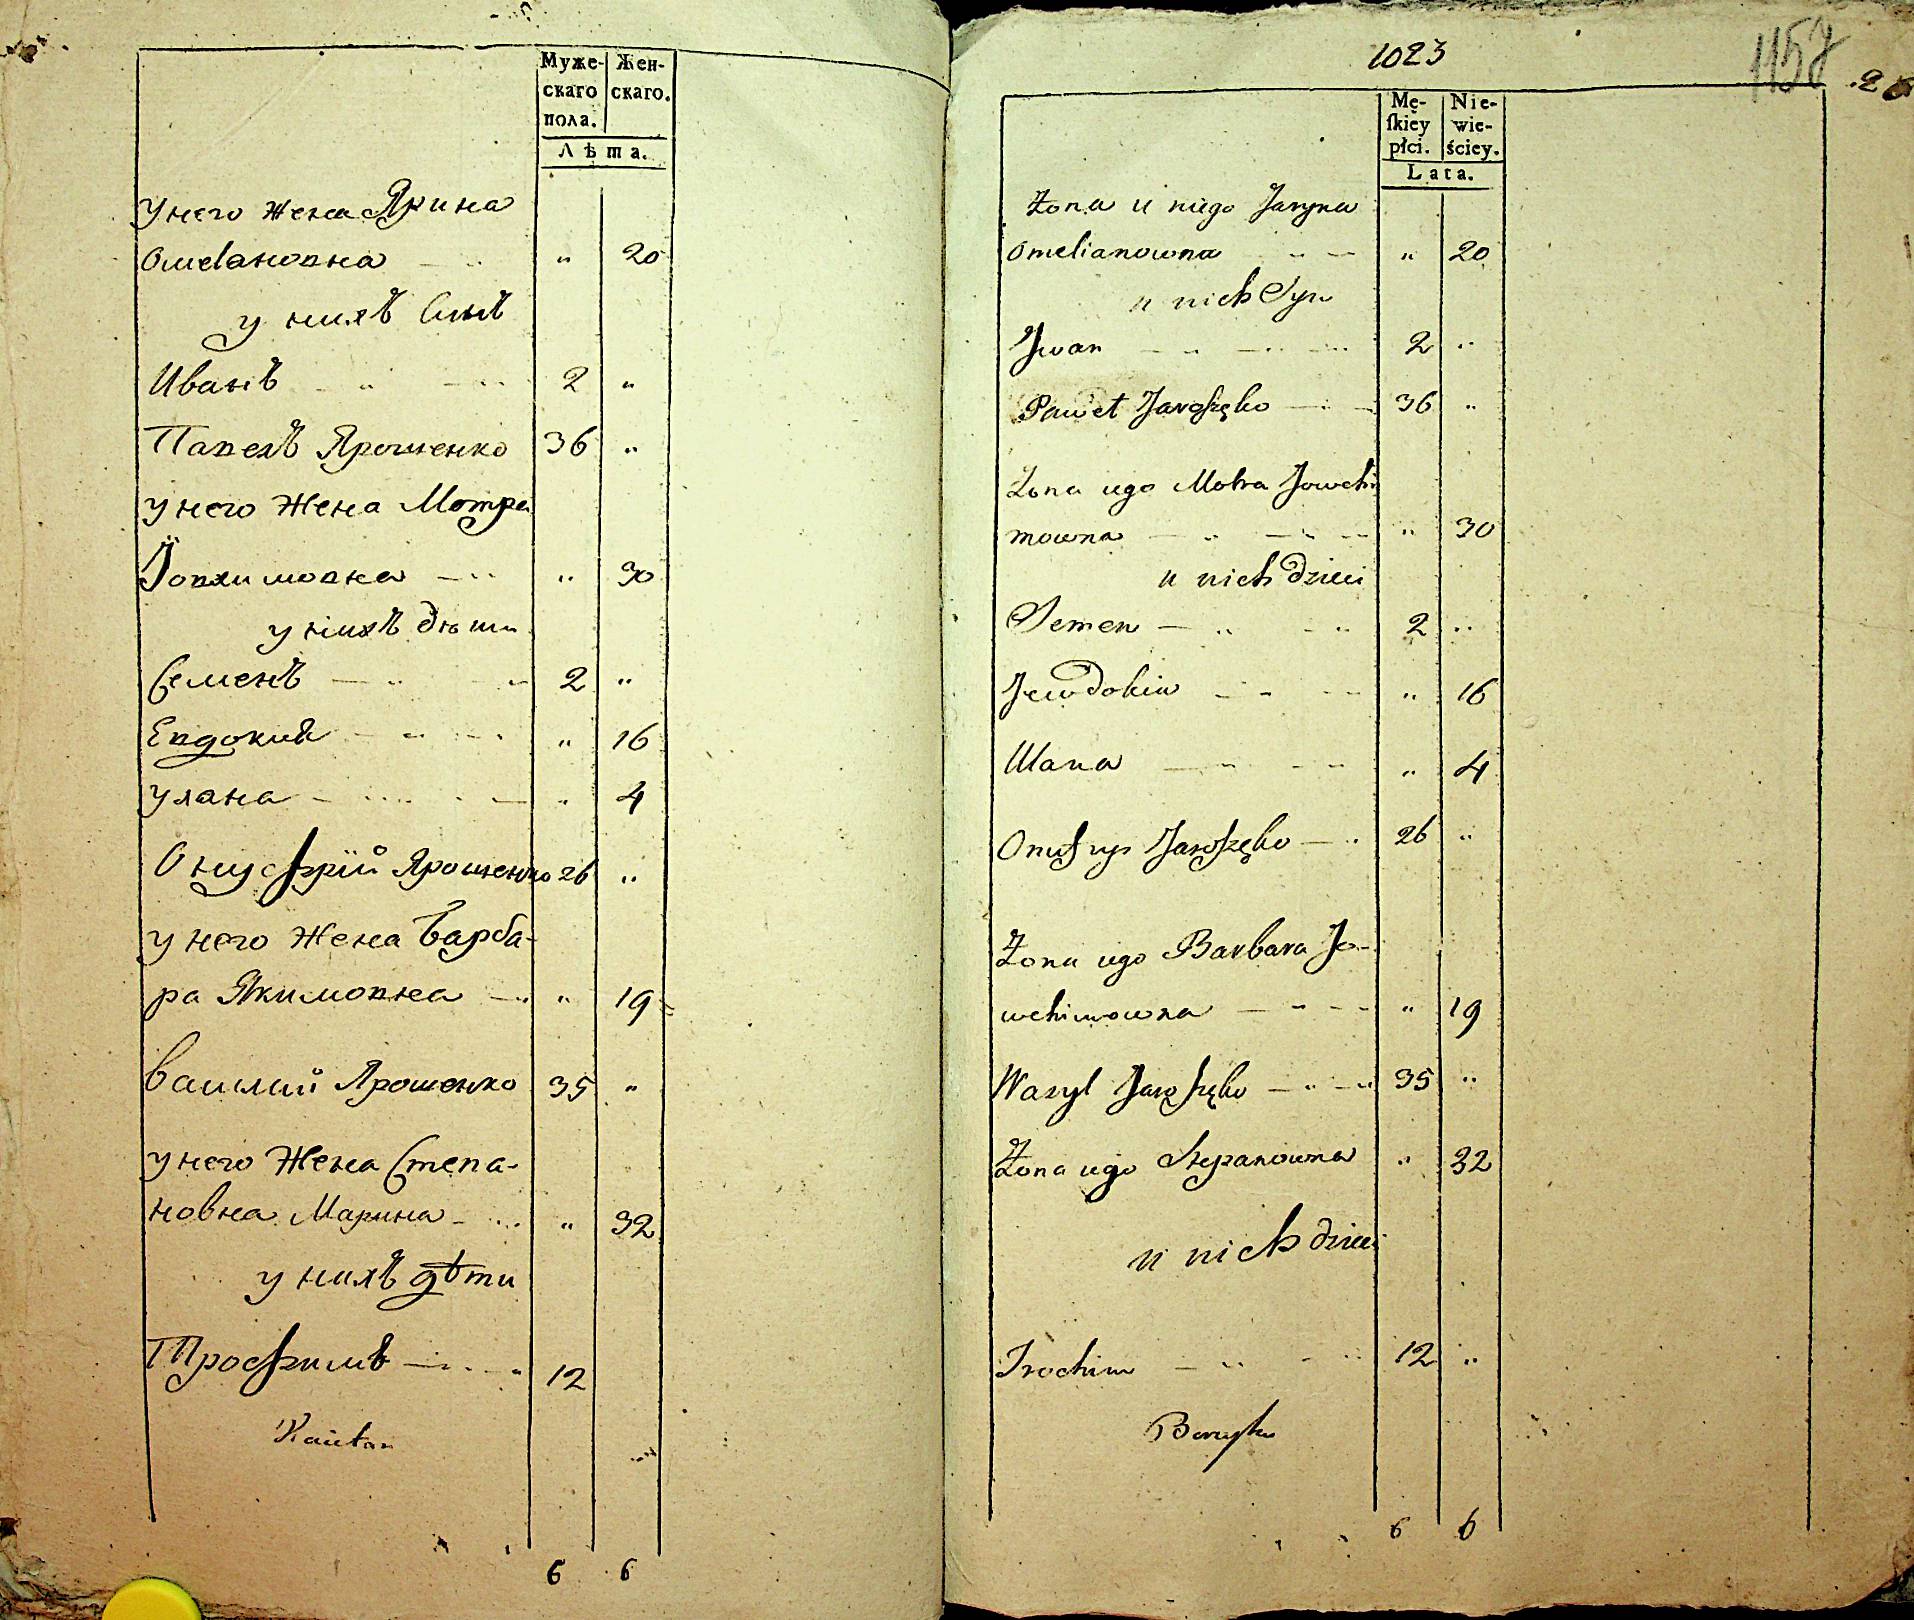 Муже-
скаго
пола.
Жен-
скаго.
Лѣта.
У него жена Ярина
Омеляновна — „ „ 20
у нихъ Сынъ
Иванъ — „ — „ 2 „
Павелъ Ярошенко 36 „
у него Жена Мотра
Іовхимовна — „ „ 30
у нихъ дѣти
Семенъ — „ — 2 „
Евдокия — „ — „ 16
улана — „ — „ 4
Онуфрій Ярошенко 26 „
у него Жена Варба-
ра Якимовна — „ „ 19
Василий Ярошенко 35 „
у него Жена Степа-
новна Марина — „ „ 32
у нихъ дѣти
Трофимъ — „ — „ 12
6 6
1023
1157
Mę-
ſkiey
płci.
Nie-
wie-
ściey.
Lata.
Żona u niego Jaryna
Omelianowna „ — „ 20
u nich Syn
Jwan — „ — „ 2 „
Paweł Jaroszęko — „ 36 „
Żona iego Motra Jowchi
mowna — „ — „ „ 30
u nich dzieci
Semen — „ — „ 2 „
Jewdokia — „ — „ 16
Ulana — „ — „ 4
Onufry Jaroszęko — „ 26 „
Żona iego Barbara Jo-
wchimowna — „ — „ 19
Wasyl Jaroszęko — „ — „ 35 „
Żona iego Stepanowna „ 32
u nich dzieci
Trochim — „ — „ 12 „
6 6